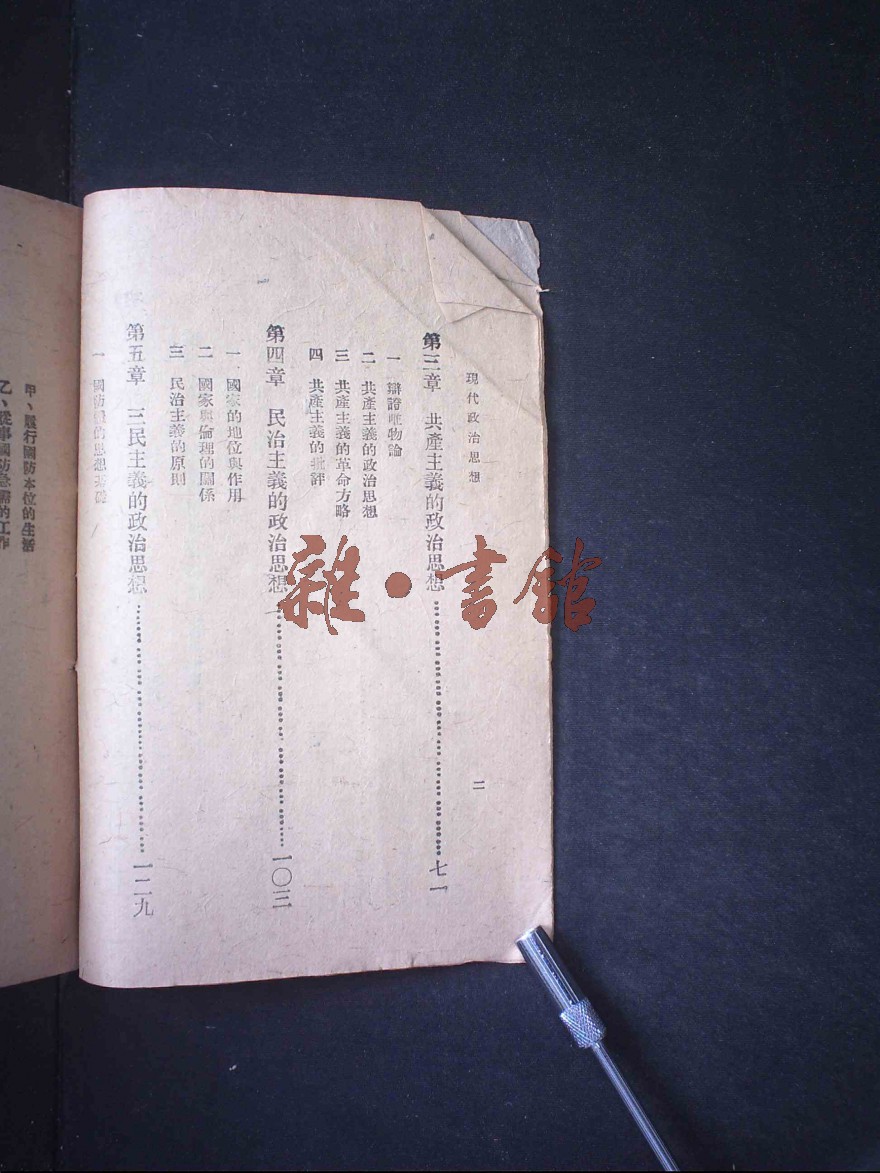 現代政治思想
二
第三章 共產主義的政治思想……七一
一 辯證唯物論
二 共產主義的政治思想
三 共產主義的革命方略
四 共產主義的批評
第四章 民治主義的政治思想……一〇三
一 國家的地位與作用
二 國家與倫理的關係
三 民治主義的原則
第五章 三民主義的政治思想……一二九
一 國防觀的思想基礎
甲、履行國防本位的生活
乙、從事國防急需的工作
雜·書館